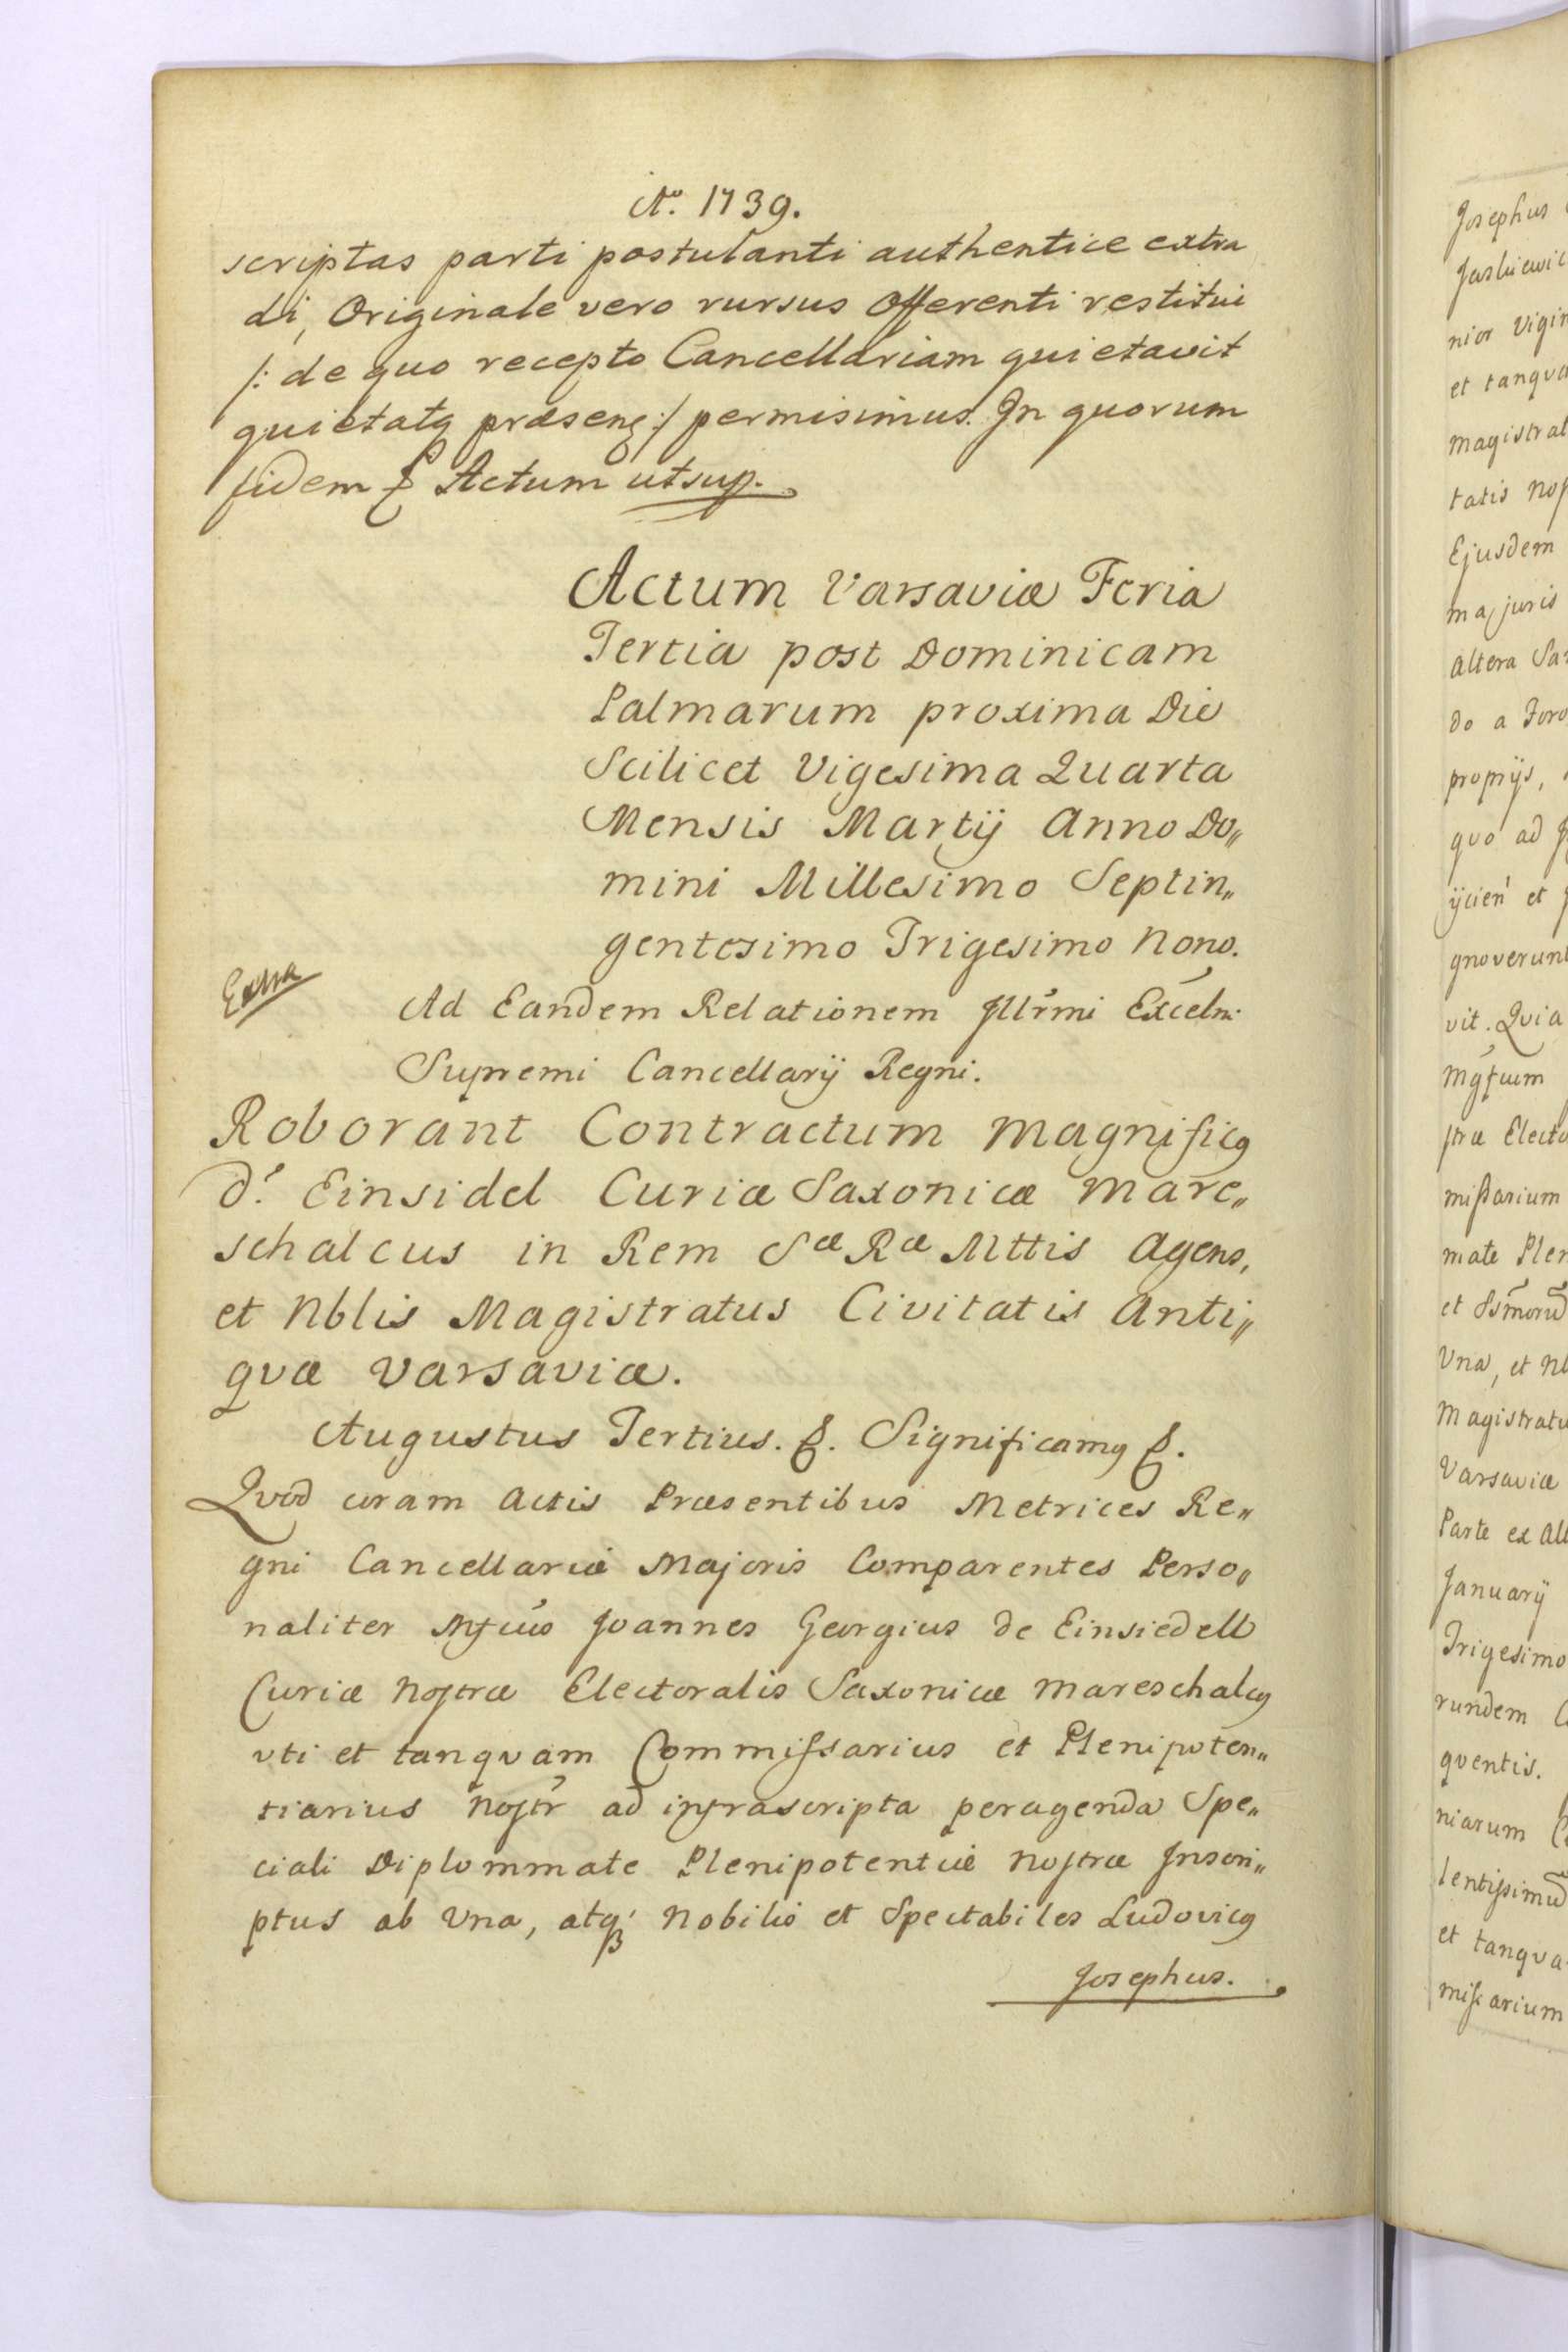 Aº. 1739.
scriptas parti postulanti authentice extra
di, Originale vero rursus Offerenti restitui
/: de quo recepto Cancellariam quietavit
quietatq præsenq :/ permisimus. In quorum
fidem Actum ut sup.
Actum Varsaviæ Feria
Tertia post Dominicam
Palmarum proxima Die
Scilicet Vigesima Quarta
Mensis Martij Anno Do„
mini Millesimo Septin„
gentesimo Trigesimo Nono.
Extra
Ad Eandem Relationem Illr̃mi Excelm.
Supremi Cancellarij Regni.
Roborant Contractum Magnificq
d. Einsidel Curiæ Saxonicæ Mare„
schalcus in Rem Sæ Ræ Mttis Agens,
et Nblis Magistratus Civitatis Anti„
quæ Varsaviæ.
Augustus Tertius. Significamq
Quod coram Actis Præsentibus Metrices Re„
gni Cancellariæ Majoris Comparentes Perso„
naliter Mfcus Joannes Georgius de Einsiedell
Curiæ Nostræ Electoralis Saxonicæ Mareschalcq
vti et tanquam Commissarius et Plenipoten„
tiarius Nostr̃ ad infrascripta peragenda Spe„
ciali Diplommate Plenipotentiæ Nostræ Inscri„
ptus ab Una, atq; Nobilis et Spectabiles Ludovicq
Josephus.
Josephus
Jaskiewic
nior Vigin
et tanqua
Magistrat
tatis Nos
Ejusdem
ma juris
Altera Sa
do a Foro
proprijs,
quo ad
ijcien et
gnoverunt
vit. Quia
Mgfcum
stræ Electo
missarium
mate Plen
et
Una, et Nb
Magistratu
Varsaviæ
Parte ex Alt
Januarij
Trigesimo
rundem C
quentis.
niarum C
lentissimũ
et tanqua
missarium